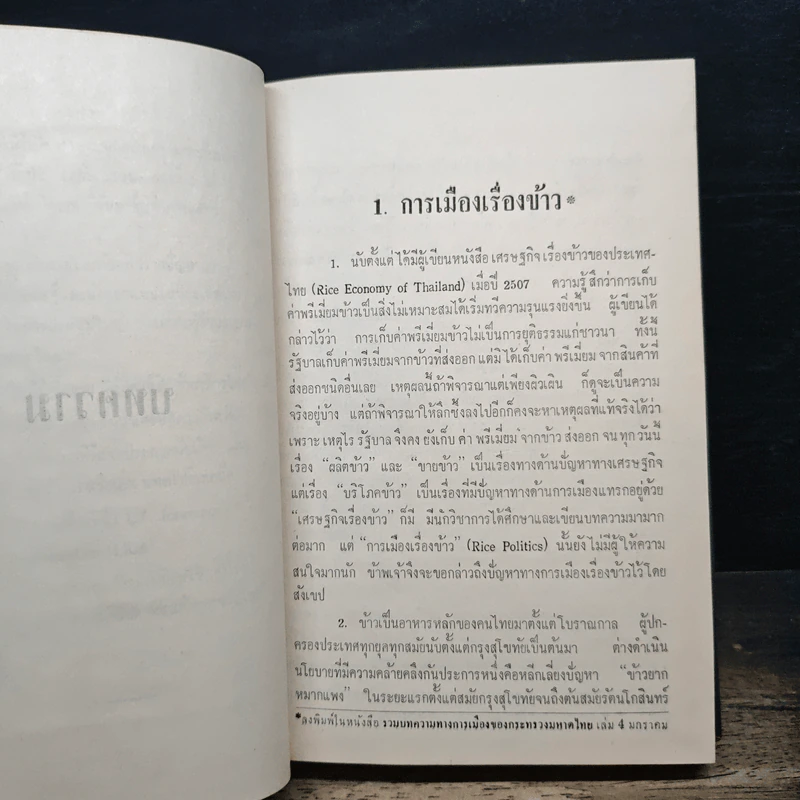 1. การเมืองเรื่องข้าว*
1. นับตั้งแต่ ได้มีผู้เขียนหนังสือ เศรษฐกิจ เรื่องข้าวของประเทศ-
ไทย (Rice Economy of Thailand) เมื่อปี 2507 ความรู้สึกว่าการเก็บ
ค่าพรีเมี่ยมข้าวเป็นสิ่งไม่เหมาะสมได้เริ่มทวีความรุนแรงยิ่งขึ้น ผู้เขียนได้
กล่าวไว้ว่า การเก็บค่าพรีเมี่ยมข้าวไม่เป็นการยุติธรรมแก่ชาวนา ทั้งนี้
รัฐบาลเก็บค่าพรีเมี่ยมจากข้าวที่ส่งออก แต่มิได้เก็บค่า พรีเมี่ยม จากสินค้าที่
ส่งออกชนิดอื่นเลย เหตุผลนี้ถ้าพิจารณาแต่เพียงผิวเผิน ก็ดูจะเป็นความ
จริงอยู่บ้าง แต่ถ้าพิจารณาให้ลึกซึ้งลงไปอีกก็คงจะหาเหตุผลที่แท้จริงได้ว่า
เพราะ เหตุไร รัฐบาล จึงคง ยังเก็บ ค่า พรีเมี่ยม จากข้าว ส่งออก จน ทุก วันนี้
เรื่อง “ผลิตข้าว” และ “ขายข้าว” เป็นเรื่องทางด้านปัญหาทางเศรษฐกิจ
แต่เรื่อง “บริโภคข้าว” เป็นเรื่องที่มีปัญหาทางด้านการเมืองแทรกอยู่ด้วย
“เศรษฐกิจเรื่องข้าว” ก็มี มีนักวิชาการได้ศึกษาและเขียนบทความมามาก
ต่อมาก แต่ “การเมืองเรื่องข้าว” (Rice Politics) นั้นยังไม่มีผู้ให้ความ
สนใจมากนัก ข้าพเจ้าจึงจะขอกล่าวถึงปัญหาทางการเมืองเรื่องข้าวไว้โดย
สังเขป
2. ข้าวเป็นอาหารหลักของคนไทยมาตั้งแต่โบราณกาล ผู้ปก-
ครองประเทศทุกยุคทุกสมัยนับตั้งแต่กรุงสุโขทัยเป็นต้นมา ต่างดำเนิน
นโยบายที่มีความคล้ายคลึงกันประการหนึ่งคือหลีกเลี่ยงปัญหา “ข้าวยาก
หมากแพง” ในระยะแรกตั้งแต่สมัยกรุงสุโขทัยจนถึงต้นสมัยรัตนโกสินทร์
*ลงพิมพ์ในหนังสือ รวมบทความทางการเมืองของกระทรวงมหาดไทย เล่ม 4 มกราคม